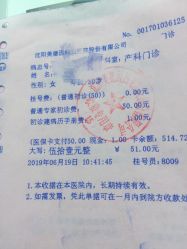 № 001701036125
沈阳美德因妇儿医院股份有限公司
门诊
病志号:
科室: 产科门诊
性别: 女
挂号费: (普通初诊(50)) 0.00元
普通专家初诊费: 50.00元
初诊建病历手册费: 1.00元
(医保卡支付50.00 现金: 1.00 卡余额: 514.72
大写: 伍拾壹元整 ¥ 51.00元
2019年06月19日 10:41:45 挂号员: 8009
1.本收据在本医院内, 长期持续有效。
2.如需发票, 凭此单据可在一个月内到院方收款处